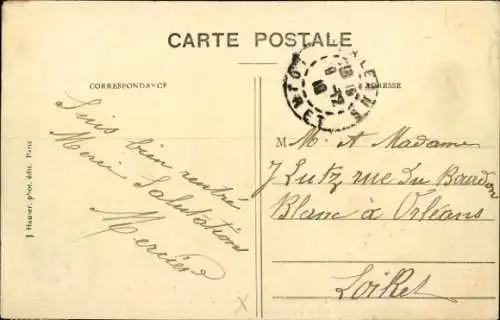 CARTE POSTALE
CORRESPONDANCE
ADRESSE
Suis bien rentré
Merci Salutations
Mercier
J. Hauser, phot. édit. Paris
ORLEANS
18 15
9 -12
10
LOIRET
M M. et Madame
J Lutz rue du Bourdon
Blanc à Orléans
Loiret
X